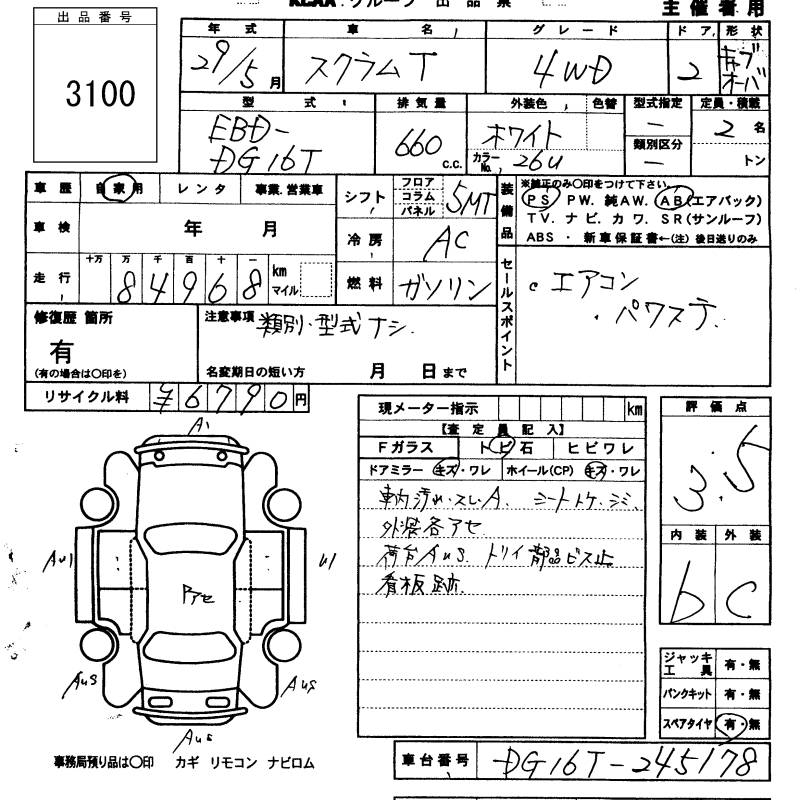 KCAA グループ 出品票
主催者用
出品番号
3100
年式 車名 グレード ドア 形状
29/5月 スクラムT 4WD 2 キャブオーバ
型式 排気量 外装色 色替 型式指定 定員・積載
EBD-DG16T 660 c.c. ホワイト カラーNo. 26U — 類別区分 — 2名 トン
車歴 自家用 レンタ 事業.営業車
シフト フロア コラム パネル 5MT
装備品
※純正のみ○印をつけて下さい。
PS PW. 純AW. AB(エアバック)
TV. ナビ. カワ. SR(サンルーフ)
ABS ・ 新車保証書←(注) 後日送りのみ
車検 年 月
冷房 AC
走行 十万 万 千 百 十 一
84968 km マイル
燃料 ガソリン
セールスポイント
エアコン
・パワステ
修復歴 箇所
有
(有の場合は○印を)
注意事項 類別・型式ナシ.
名変期日の短い方 月 日まで
リサイクル料 ¥6790円
現メーター指示 km
【査定員記入】
Fガラス トビ石 ヒビワレ
ドアミラー キズ・ワレ ホイール(CP) キズ・ワレ
車内汚れ・スレA. シートコゲ・シミ.
外装各アセ
荷台AUS. トリイ部品ビス止
看板跡.
評価点
3.5
内装 外装
b C
ジャッキ工具 有・無
パンクキット 有・無
スペアタイヤ 有・無
A1
AU1
U1
Pアセ
AUS
AUS
AUS
事務局預り品は○印 カギ リモコン ナビロム
車台番号 DG16T-245178